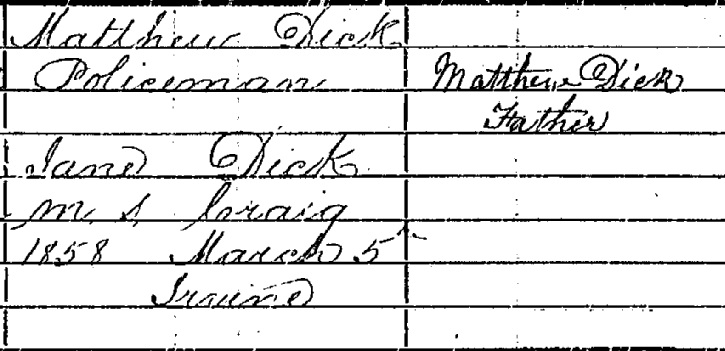 Matthew Dick
Policeman
Jane Dick
M. S. Craig
1858 March 5
Irvine
Matthew Dick
Father